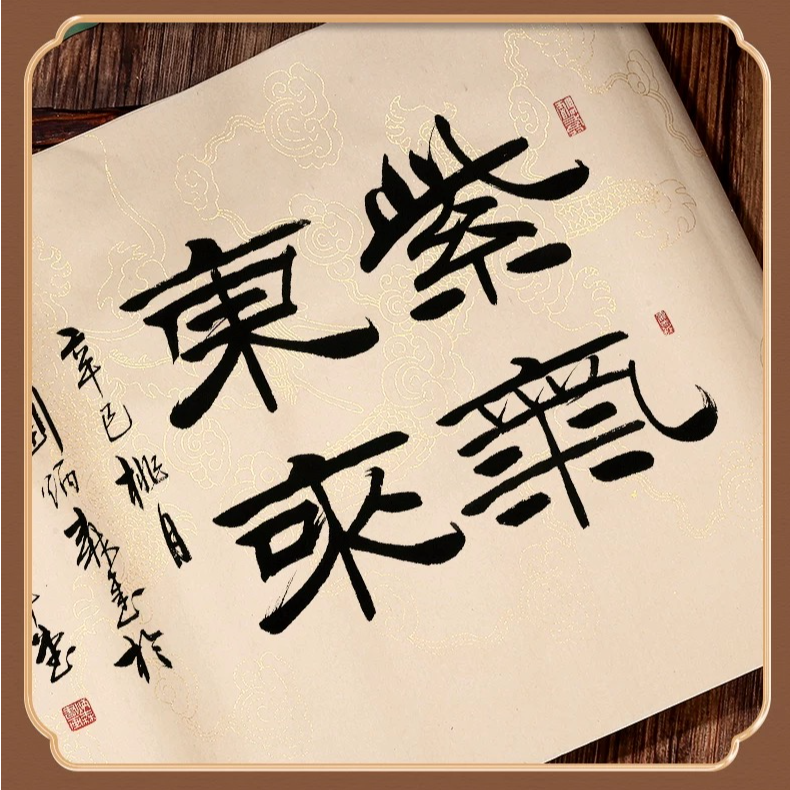 紫氣
東來
辛巳桃月
炳森書於
堂